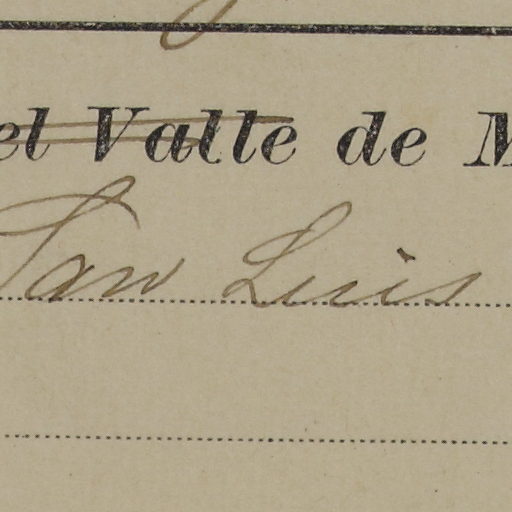 el Valle de M
San Luis